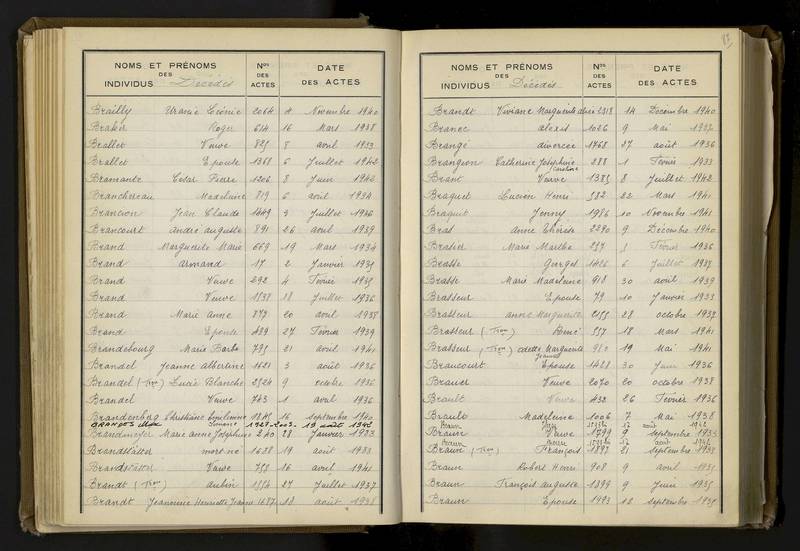 NOMS ET PRÉNOMS DES INDIVIDUS Décédés
Nos DES ACTES
DATE DES ACTES
Brailly Uranie Léonie 2064 4 Novembre 1940
Braker Roger 654 16 Mars 1938
Brallet Veuve 825 8 avril 1933
Brallet Epouse 1368 6 Juillet 1942
Bramante César Pierre 1206 8 Juin 1942
Branchereau Madeleine 819 6 avril 1934
Brancion Jean Claude 3 Juillet 1936
Brancourt andré auguste 891 26 avril 1939
Brand Marguerite Marie 669 19 Mars 1934
Brand armand 17 2 Janvier 1935
Brand Veuve 292 4 Février 1935
Brand Veuve 1538 18 Juillet 1936
Brand Marie Anne 879 20 avril 1938
Brand Epouse 489 27 Février 1939
Brandebourg Marie Barbe 795 21 avril 1941
Brandel Jeanne albertine 1621 3 août 1936
Brandel (Von) Lucie Blanche 2524 9 octobre 1936
Brandel Veuve 743 1 avril 1936
Brandenburg Christiane Emilienne 1845 16 septembre 1940
BRANDES Max 19 août 1942
Brandmeyer Marie Anne Joséphine 240 28 Janvier 1933
Brandstätter mort né 1638 19 août 1933
Brandstätter Veuve 755 16 avril 1941
Brandt aubin 1556 27 Juillet 1937
Brandt Jeannine Henriette Jeanne 1687 18 août 1938
83
NOMS ET PRÉNOMS DES INDIVIDUS Décédés
Nos DES ACTES
DATE DES ACTES
Brandt Viviane Marguerite alice 2318 14 Décembre 1940
Branec alexis 1026 9 Mai 1937
Brangé divorcée 1768 27 août 1936
Brangeon Catherine Joséphine 288 1 Février 1933
Caroline
Brant Veuve 1385 8 Juillet 1942
Braquet Lucien Henri 582 22 Mars 1941
Braquit Jenny 1986 10 Novembre 1941
Bras anne thérèse 2290 9 Décembre 1940
Brasier Marie Marthe 257 5 Février 1936
Brasse Georges 1426 6 Juillet 1937
Brasse Marie Madeleine 918 30 avril 1939
Brasseur Epouse 79 10 Janvier 1933
Brasseur anne Marguerite 28 octobre 1937
Brasseur (Von) Aimé 557 18 Mars 1941
Brasseur (Von) odette Marguerite 950 19 Mai 1941
Jeanne
Braucourt Epouse 1428 30 Juin 1936
Brauer Veuve 2070 20 octobre 1938
Brault Veuve 432 26 Février 1936
Brault Madeleine 1006 7 Mai 1938
Braun août 1942
Braun Veuve 1799 9 septembre 1933
Braun août 1942
Braun François 1897 21 septembre 1933
Braun Robert Henri 908 9 avril 1935
Braun François auguste 1399 9 Juin 1935
Braun Epouse 1993 12 septembre 1935